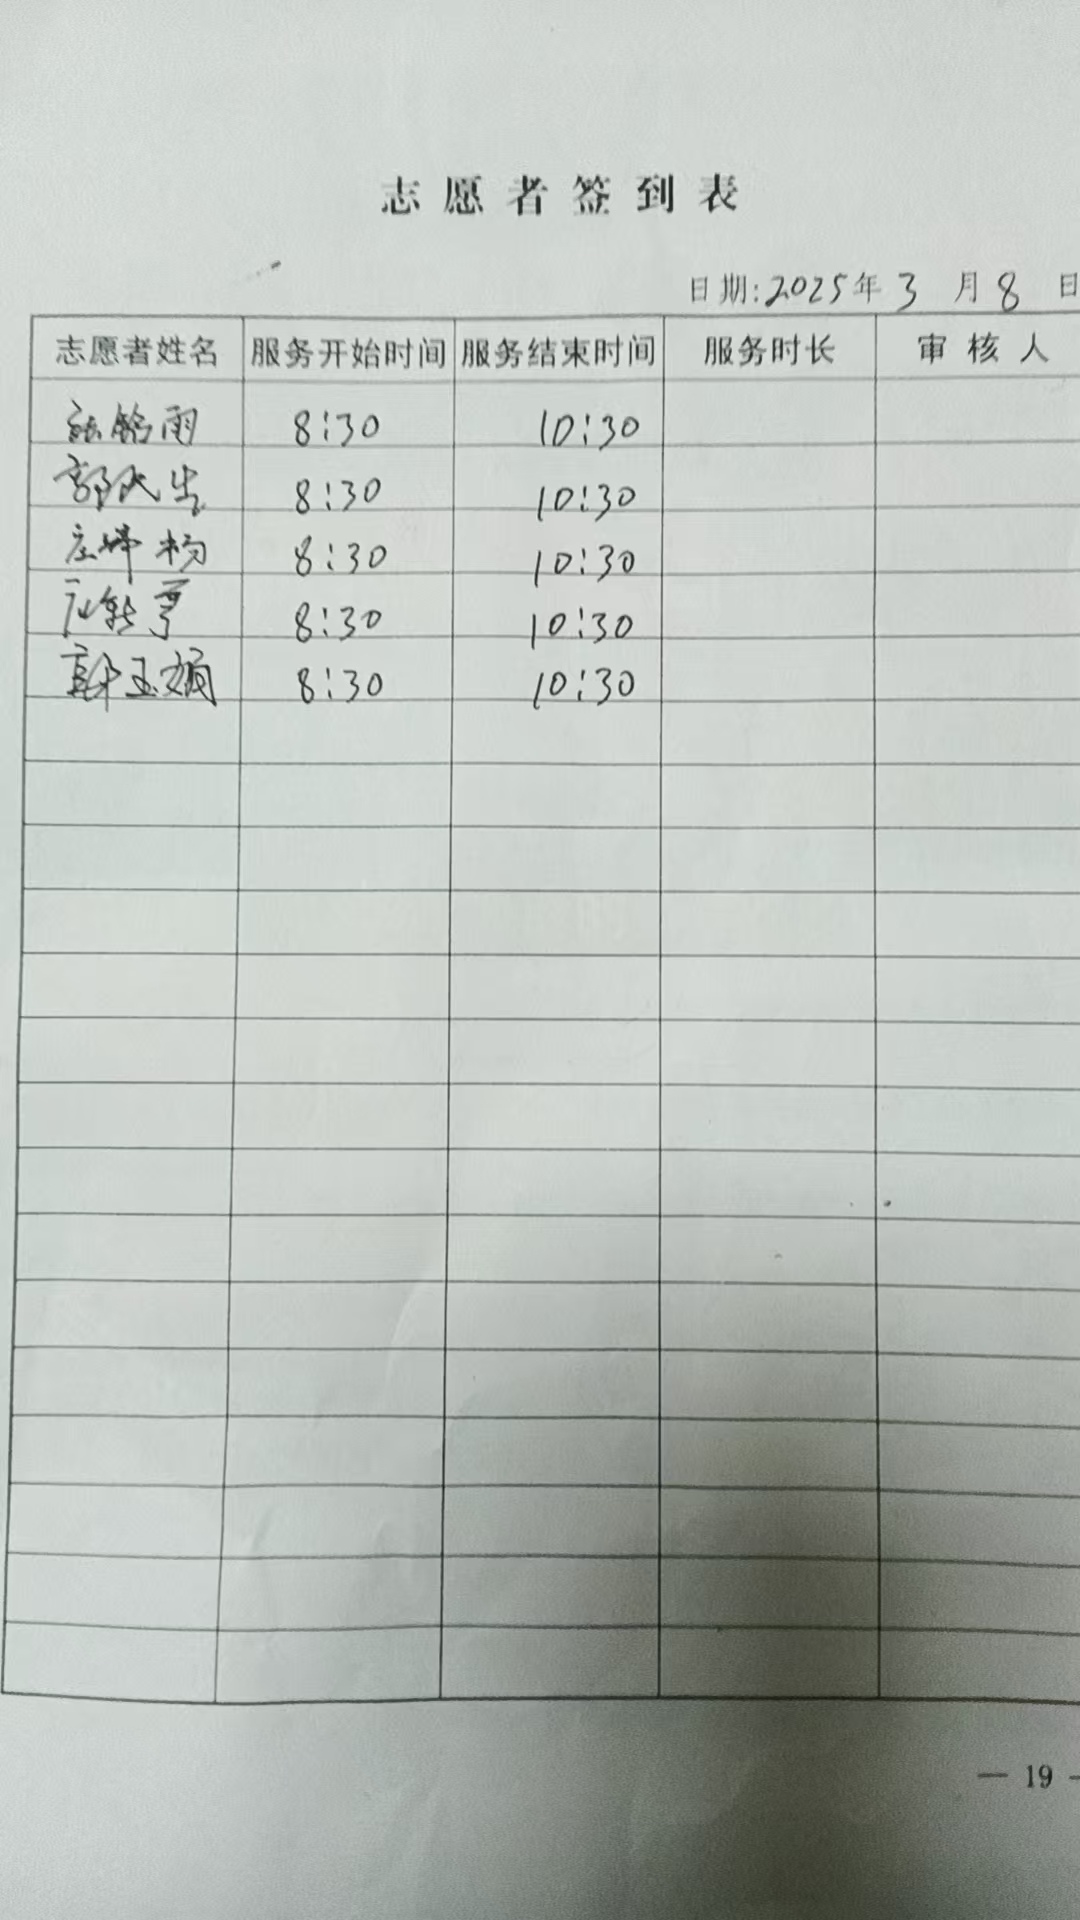 志愿者签到表
日期:2025年3月8日
志愿者姓名 服务开始时间 服务结束时间 服务时长 审核人
雨 8:30 10:30
郭 生 8:30 10:30
庄 杨 8:30 10:30
8:30 10:30
郭玉娟 8:30 10:30
— 19 —